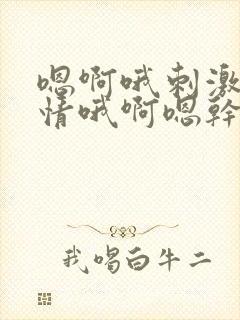 嗯啊哦刺激
情哦啊嗯幹
我喝白牛二